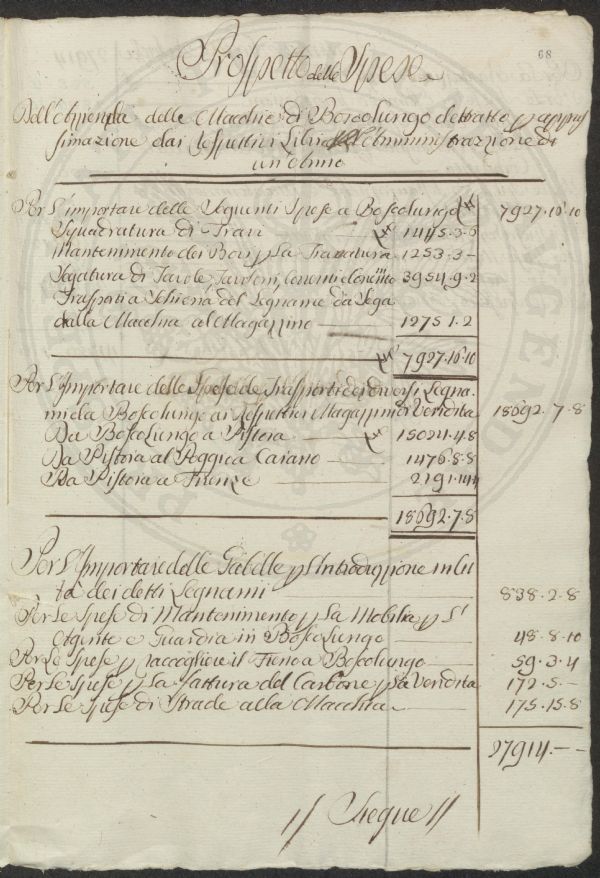 68
Prospetto delle Spese
Dell'Azienda delle Macchie di Boscolungo detratto p appros
simazione dai respettivi Libri dell'Amministrazione di
un'Anno
Per L'importare delle Seguenti Spese a Boscolungo 7927.16.10
Squadratura di Travi 1445.3.6
Mantenimento dei Bovi p La Travatura 1253.3.-
Segatura di Tavole, Tavoloni, Correnti 3954.9.2
Trasporti a Schiena del Legname da Sega
dalla Macchia al Magazzino 1275.1.2
7927.16.10
Per L'Importare delle Spese de Trasporti dei diversi Legna
mi da Boscolungo ai respettivi Magazzini di Vendita 18692.7.8
Da BoscoLungo a Pistoia 15024.4.8
Da Pistoia al Poggio a Caiano 1476.8.8
Da Pistoia a Firenze 2191.14.4
18692.7.8
Per L'Importare delle Gabelle p L'Introduzione in Cit
tà dei detti Legnami 838.2.8
Per Le Spese di Mantenimento p La Mobilia p L'
Agente e Guardia in BoscoLungo 48.8.10
Per Le Spese p raccogliere il Fieno a Boscolungo 59.3.4
Per Le Spese p La fattura del Carbone p La Vendita 172.5.-
Per Le Spese di Strade alla Macchia 175.15.8
27914.-.-
// Siegue //